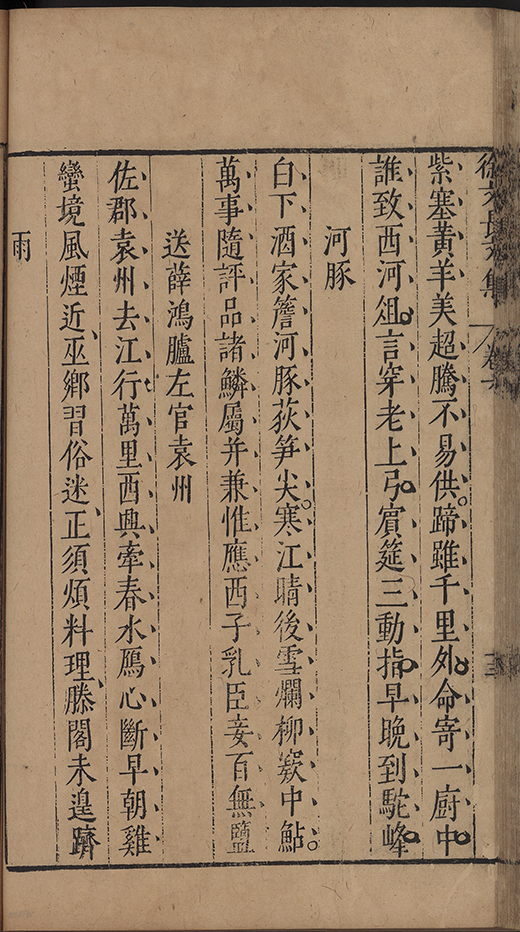 徐文長文集 卷六
紫塞黃羊美超騰不易供蹄雖千里外命寄一廚中
誰致西河俎言穿老上弓賓筵三動指早晚到駝峰
河豚
白下酒家簷河豚荻笋尖寒江晴後雪爛柳窾中鮎
萬事隨評品諸鱗屬并兼惟應西子乳臣妾百無鹽
送薛鴻臚左官袁州
佐郡袁州去江行萬里西興牽春水鴈心斷早朝雞
蠻境風煙近巫鄉習俗迷正須煩料理滕閣未遑躋
雨